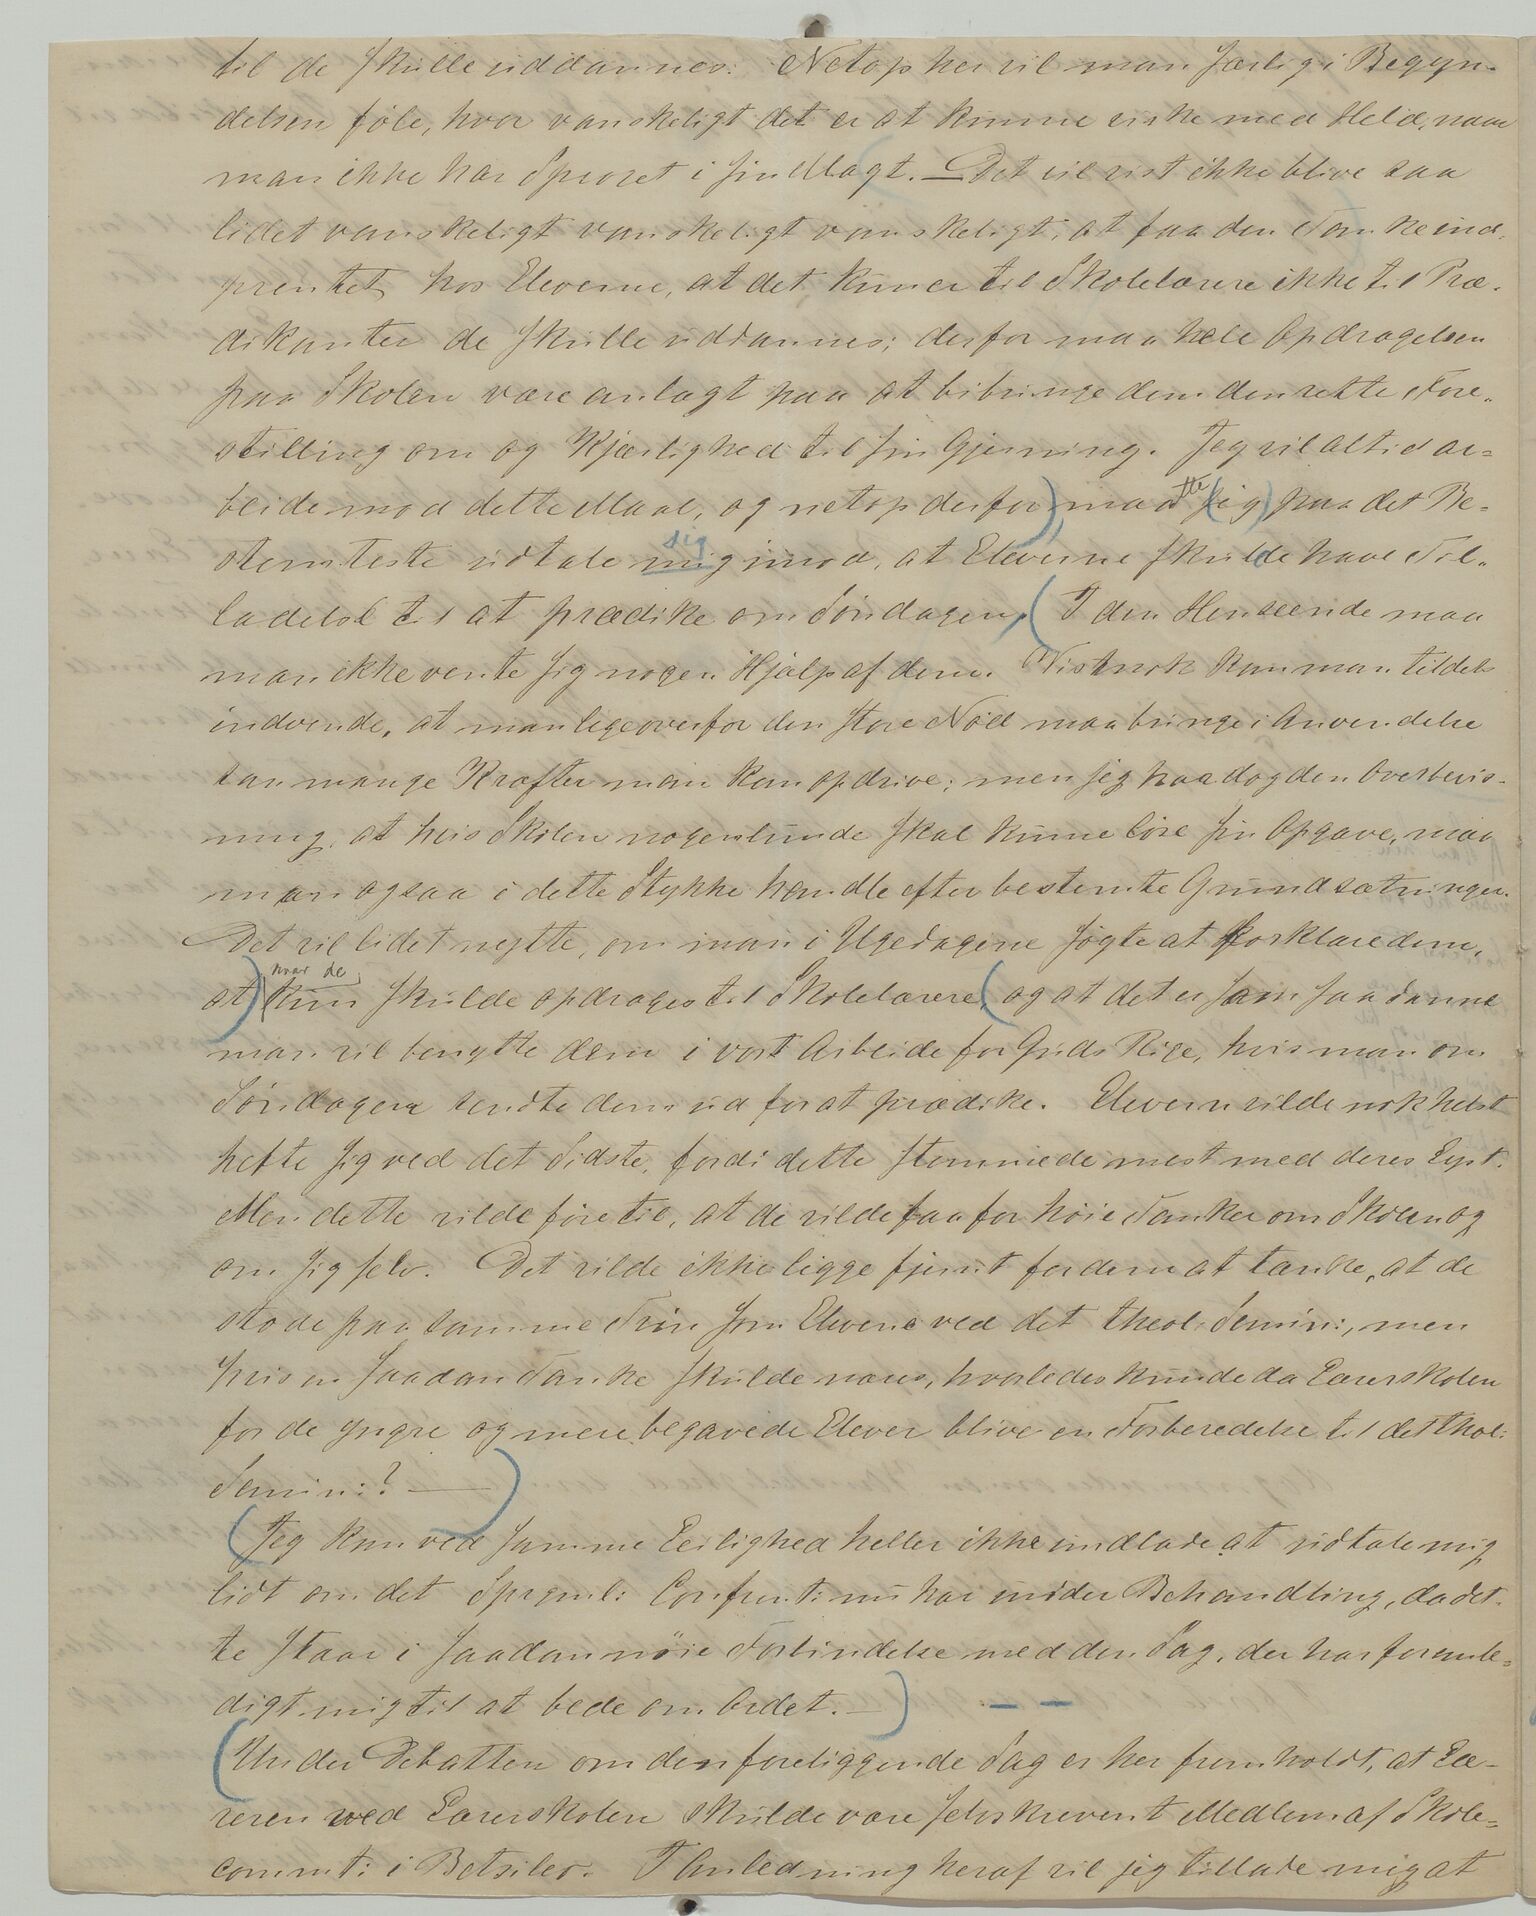 til de skulle uddannes. Netop her vil man særlig i Begyn-
delsen føle, hvor vanskeligt det er at kunne virke med Held, naar
man ikke har Sproget i sin Magt. — Det vil vist ikke blive saa
lidet vanskeligt vanskeligt vanskeligt, at faa den Tanke ind-
prentet hos Eleverne, at det kun er til Skolelærere ikke til Præ-
dikanter de skulle uddannes; derfor maa hele Opdragelsen
paa Skolen være anlagt paa at bibringe dem den rette Fore-
stilling om og Kjærlighed til sin Gjerning. Jeg vil altid ar-
beide mod dette Maal, og netop derfor) maatte (jeg) paa det Be-
stemteste udtale mig sig imod, at Eleverne skulde have Til-
ladelse til at prædike om Søndagen, (I den Henseende maa
man ikke vente sig nogen Hjælp af dem. Vistnok kan man til det
indvende, at man ligeoverfor den store Nød maa bringe i Anvendelse
saa mange Kræfter man kan opdrive; men jeg har dog den Overbevis-
ning, at hvis Skolen nogenlunde skal kunne løse sin Opgave, maa
man ogsaa i dette Stykke handle efter bestemte Grundsætninger.
Det vil lidet nytte, om man i Ugedagene søgte at forklare dem,
at) naar de kun skulde opdrages til Skolelærere, (og at det er som saadanne
man vil benytte dem i vort Arbeide for Guds Rige, hvis man om
Søndagen sendte dem ud for at prædike. Eleverne vilde nok helst
hefte sig ved det Sidste, fordi dette stemmede mest med deres Lyst.
Men dette vilde føre til, at de vilde faa for høie Tanker om Skolen og
om sig selv. Det vilde ikke ligge fjernt for dem at tænke, at de
stode paa samme Trin som Eleverne ved det theol. Semin:, men
hvis en saadan Tanke skulde næres, hvorledes kunde da Lærerskolen
for de yngre og mere begavede Elever blive en Forberedelse til det theol:
Semin:? — )
(Jeg kan ved samme Leilighed heller ikke undlade at udtale mig
lidt om det Sprgml: Conferent: nu har under Behandling, da det-
te staar i saadan nøie Forbindelse med den Sag, der har foranle-
diget mig til at bede om Ordet. — ) — —
(Under Debatten om den foreliggende Sag er her fremholdt, at Læ-
reren ved Lærerskolen skulde være selvskrevent Medlem af Skole-
commt: i Betsileo. I Anledning heraf vil jeg tillade mig at